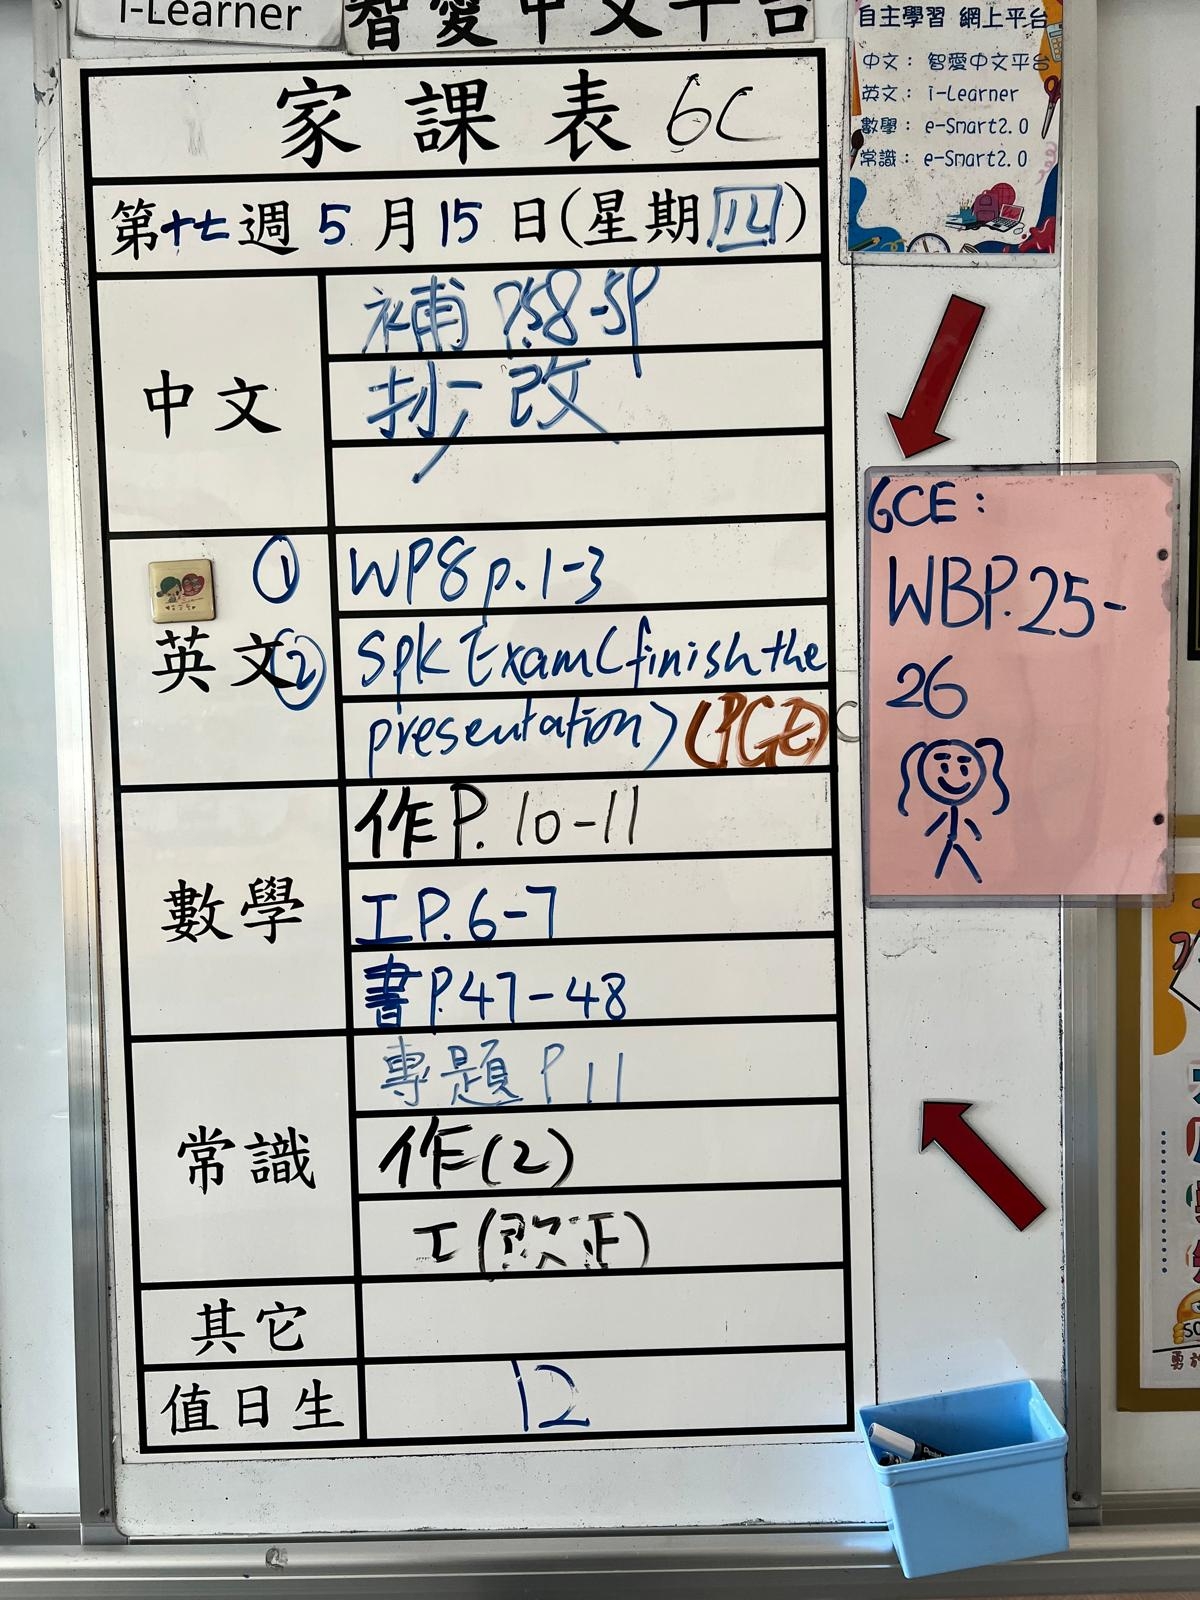 i-Learner
智愛中文平台
自主學習 網上平台
中文：智愛中文平台
英文：i-Learner
數學：e-Smart2.0
常識：e-Smart2.0
家課表 6C
第十七週 5月15日(星期四)
中文
補 P.58-59
抄改
英文
① WP8 p.1-3
② Spk Exam (finish the
presentation) (PGE)
GCE：
WBP.25-
26
數學
作P.10-11
工P.6-7
書P.47-48
常識
專題 P11
作(2)
工(改正)
其它
值日生
12